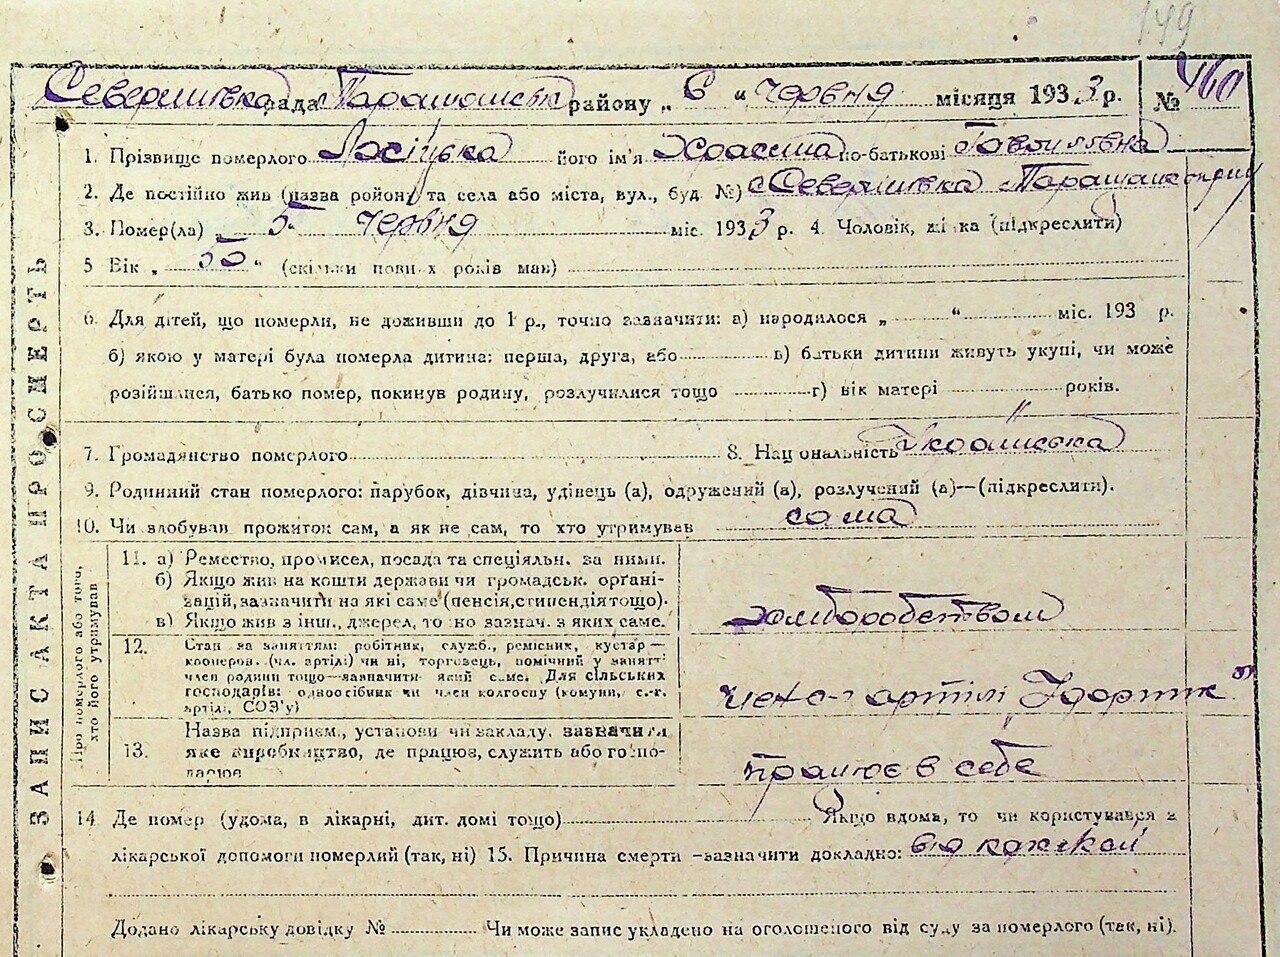 149
Северинівка рада Тарашанськ району „ 6 “ червня місяця 1933 р. № 460
1. Прізвище померлого його ім'я по-батькові Гаврилівна
2. Де постійно жив (назва району та села або міста, вул., буд. №) с Северинівка Таращанск
3. Помер(ла) „ 5 “ червня міс. 1933 р. 4. Чоловік, жі ка (підкреслити)
5 Вік „ 50 “ (скільки повн х років мав)
6. Для дітей, що померли, не доживши до 1 р., точно зазначити: а) народилося „ “ міс. 193 р.
б) якою у матері була померла дитина: перша, друга, або в) батьки дитини живуть укупі, чи може
розійшлися, батько помер, покинув родину, розлучилися тощо г) вік матері років.
7. Громадянство померлого 8. Нац ональність Українська
9. Родинний стан померлого: парубок, дівчина, удівець (а), одружений (а), розлучений (а)—(підкреслити).
10. Чи здобував прожиток сам, а як не сам, то хто утримував сама
ЗАПИС АКТА ПРО СМЕРТЬ
Про померлого або того, хто його утримував
11. а) Ремество, промисел, посада та спеціяльн. за ними.
б) Якщо жив на кошти держави чи громадськ. органі-
зацій, зазначити на які саме (пенсія, стипендія тощо).
в) Якщо жив з інш., джерел, то но зазнач. з яких саме.
хліборобством
12. Стан за заняттям: робітник, служб., ремісник, кустар—
кооперов. (чл. артілі) чи ні, торговець, помічний у занятт
член родини тощо—зазначити який саме. Для сільських
господарів: одноосібник чи член колгоспу (комуни, с.-г.
артілі, СОЗ'у)
член артілі
13. Назва підприєм., установи чи закладу, зазначити
яке виробництво, де працює, служить або госпо-
дарює
працює в себе
14 Де помер (удома, в лікарні, дит. домі тощо) Якщо вдома, то чи користувався з
лікарської допомоги померлий (так, ні) 15. Причина смерти —зазначити докладно: від
Додано лікарську довідку № Чи може запис укладено на оголошеного від суду за померлого (так, ні).